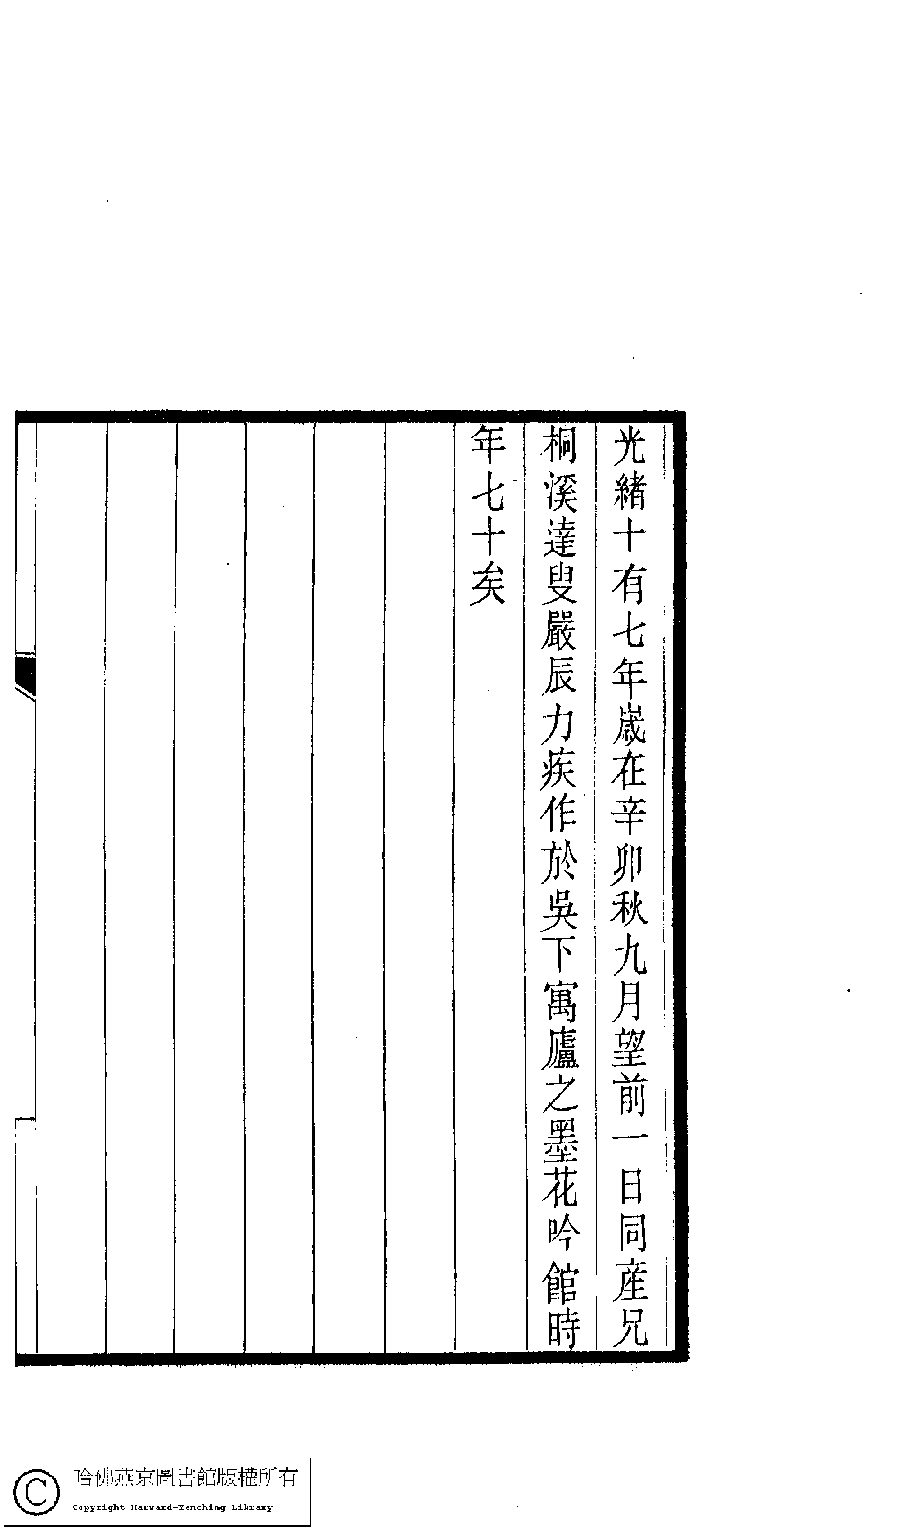 光緒十有七年歲在辛卯秋九月望前一日同產兄
桐溪達叟嚴辰力疾作於吳下寓廬之墨花吟館時
年七十矣
哈佛燕京圖書館版權所有
Copyright Harvard-Yenching Library